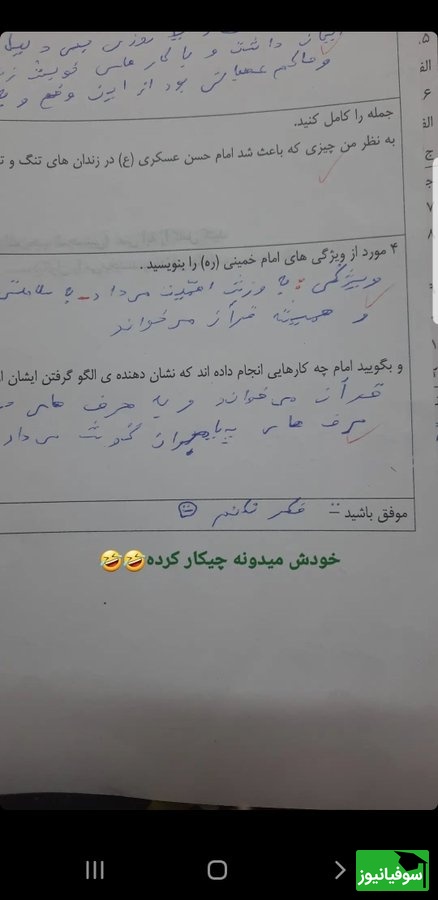 ۵.
ایمان داشت و با کار های خویش
و حاکم عصبانی بود از این وضع و
الف
۶
الف
جمله را کامل کنید.
به نظر من چیزی که باعث شد امام حسن عسکری (ع) در زندان های تنگ و ت
ج
۷
۸
۴ مورد از ویژگی های امام خمینی (ره) را بنویسید .
ویژگی : به ورزش اهمیت می داد - به سلامتی
و همیشه قرآن می خواند
و بگویید امام چه کارهایی انجام داده اند که نشان دهنده ی الگو گرفتن ایشان از
قرآن می خواند و به حرف های
حرف های پیامبران گوش می داد
موفق باشید = فکر نکنم
خودش میدونه چیکار کرده🤣🤣
سوفیانیوز